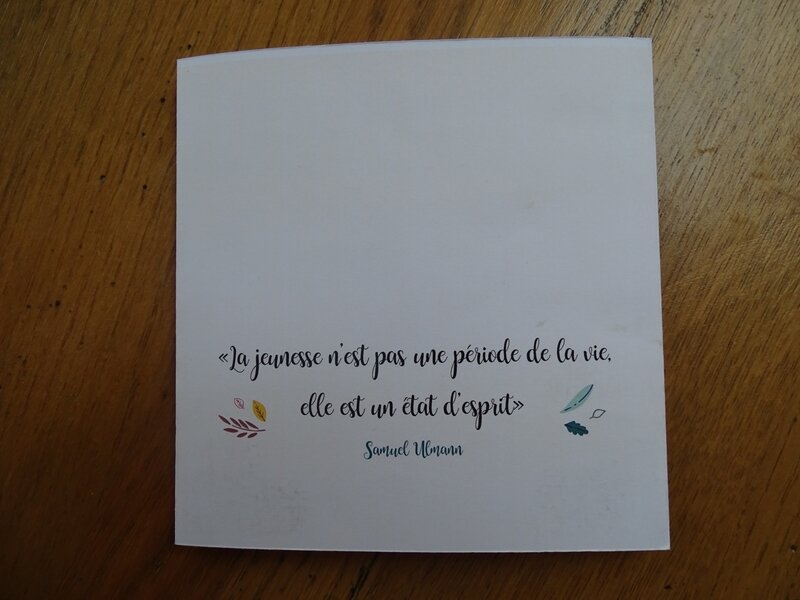 «La jeunesse n'est pas une période de la vie,
elle est un état d'esprit»
Samuel Ulmann